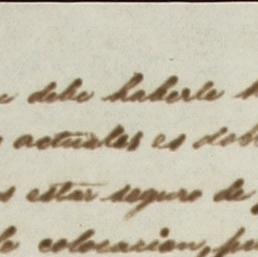 debe haberle
actuales es
estar seguro de
colocacion,